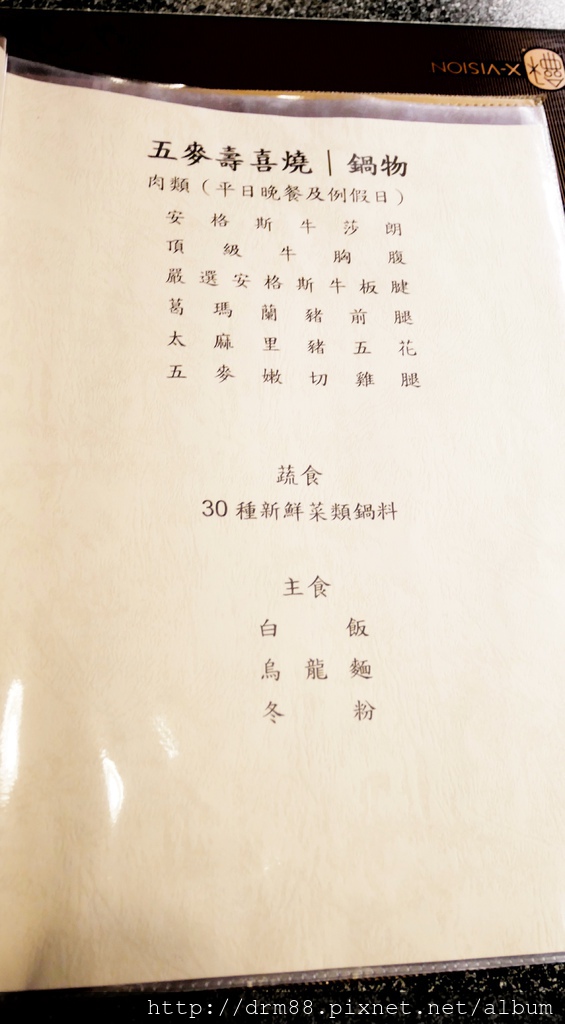 X-VISION
五麥壽喜燒｜鍋物
肉類（平日晚餐及例假日）
安格斯牛莎朗
頂級牛胸腹
嚴選安格斯牛板腱
葛瑪蘭豬前腿
太麻里豬五花
五麥嫩切雞腿
蔬食
30 種新鮮菜類鍋料
主食
白飯
烏龍麵
冬粉
http://drm88.pixnet.net/album